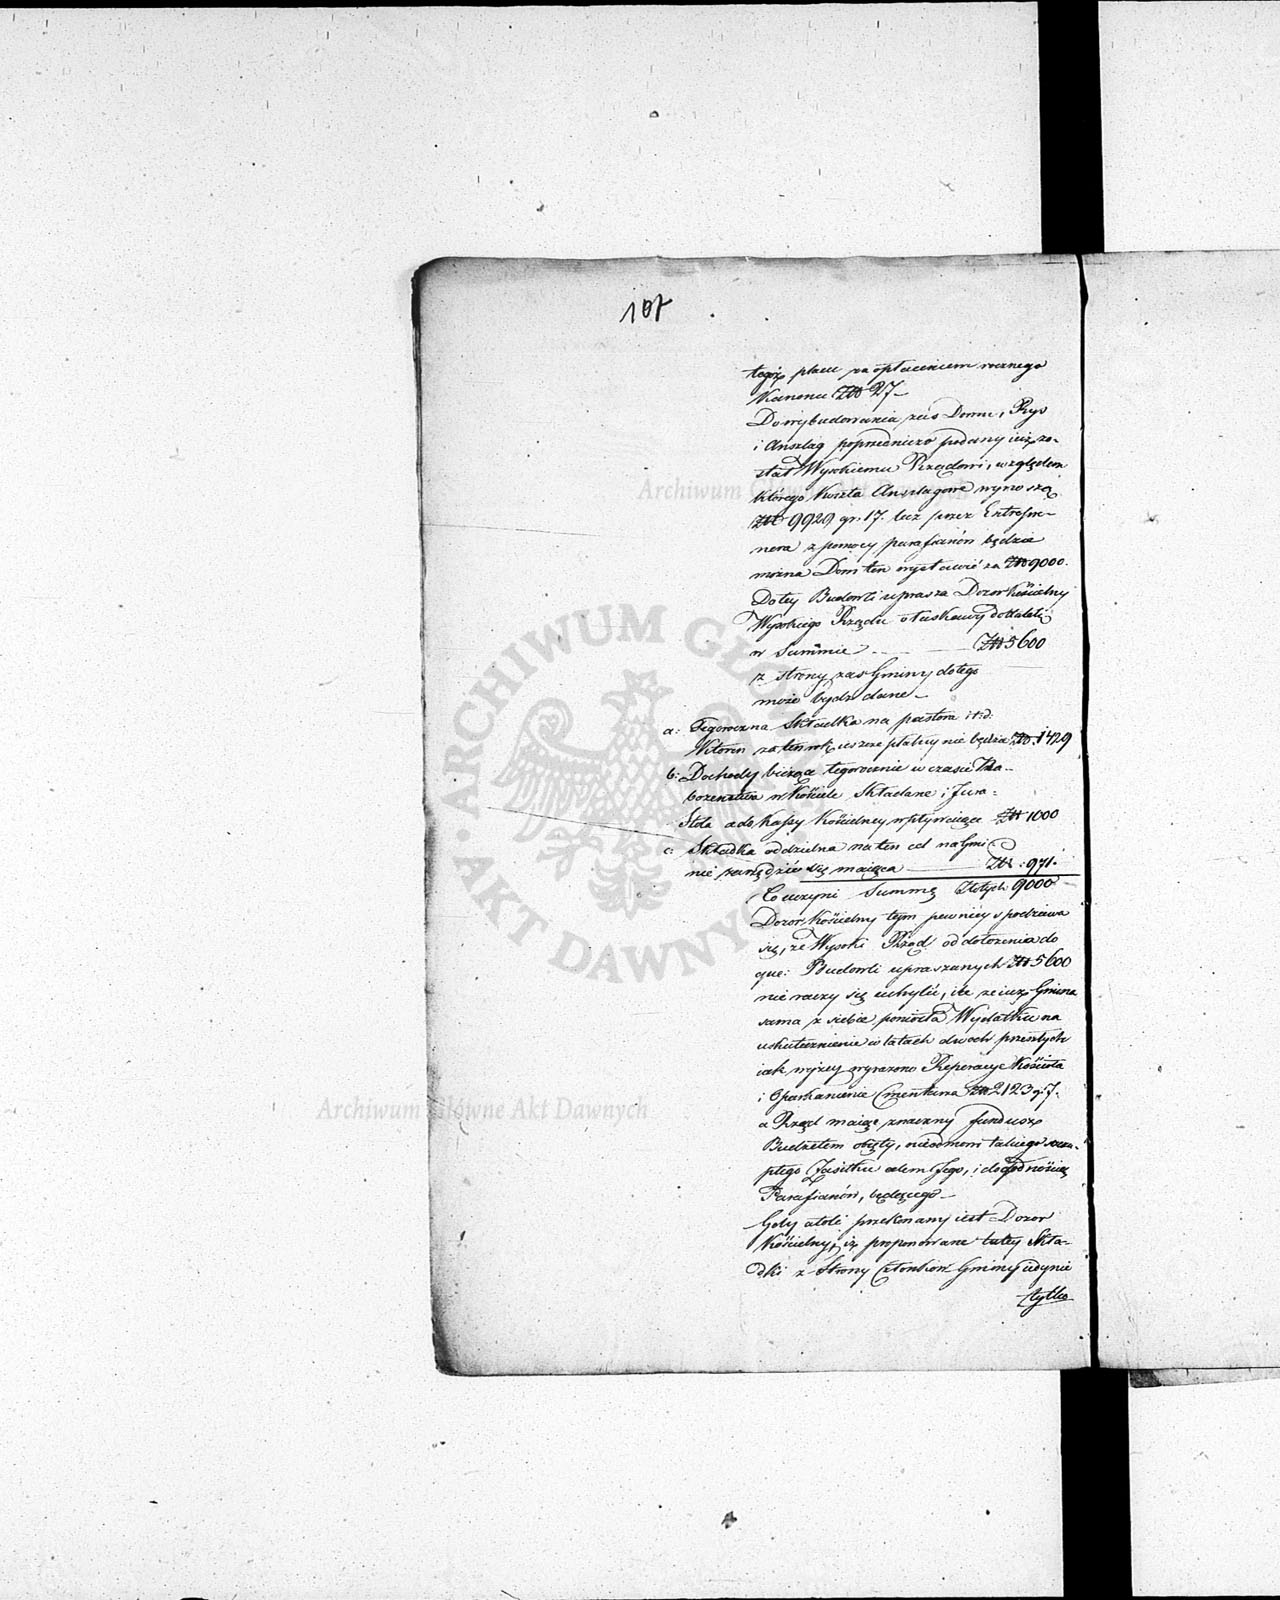 107
tegoż placu za opłaceniem rocznego
Kanonu Złł 27 –
Do wybudowania zaś Domu, Rys
i Anszlag poprzedniczo podany iuż zo-
stał Wysokiemu Rządowi, względem
którego Koszta Anszlagowe wynoszą
Złł 9929 gr. 17. lecz przez Entrepre-
nera z pomocy parafianów będzie
można Dom ten wystawić za Złł 9000.
Do tey Budowli uprasza Dozor Kościelny
Wysokiego Rządu o łaskawy dodatek
w Summie Złł 5600
z strony zas Gminy do tego
może bydz dane –
a: Tegoroczna Składka na pastora i t: d:
Ktoren za ten rok ieszcze płatny nie będzie Zł. 1429
b: Dochody bieżące tegorocznie w czasie Na-
bozenstwa w Kościele Składane i Jura
Stola a do Kassy Kościelney wpływaiące Złł 1000
c: Składka oddzielna na ten cel na Gmi-
nie się maiąca Złł: 971.
Co uczyni Summę Złotych 9000
Dozor Kościelny tym pewniey spodziewa
się, że Wysoki Rząd od dołożenia do
que: Budowli upraszanych Złł 5600
nie raczy się uchylić, ile ze iuż Gmina
sama z siebie poniosła Wydatku na
uskutecznienie w latach dwoch przeszłych
iak wyzey wyrazono Reperacye Kościoła
i Oparkanienie Cmentarza Złł 2123 g. 7.
a Rząd maiąc znaczny fundusz
Budżetem obięty, nieodmowi takiego szczu-
płego Zasiłku celem Jego, i dogodnością
Parafianów, będącego –
Gdy atoli przekonany iest Dozor
Kościelny, iż proponowane tutey Skła-
dki z Strony Członkow Gminy iedynie
tylko
Archiwum Główne Akt Dawnych
ARCHIWUM GŁÓWNE AKT DAWNYCH
Archiwum Główne Akt Dawnych